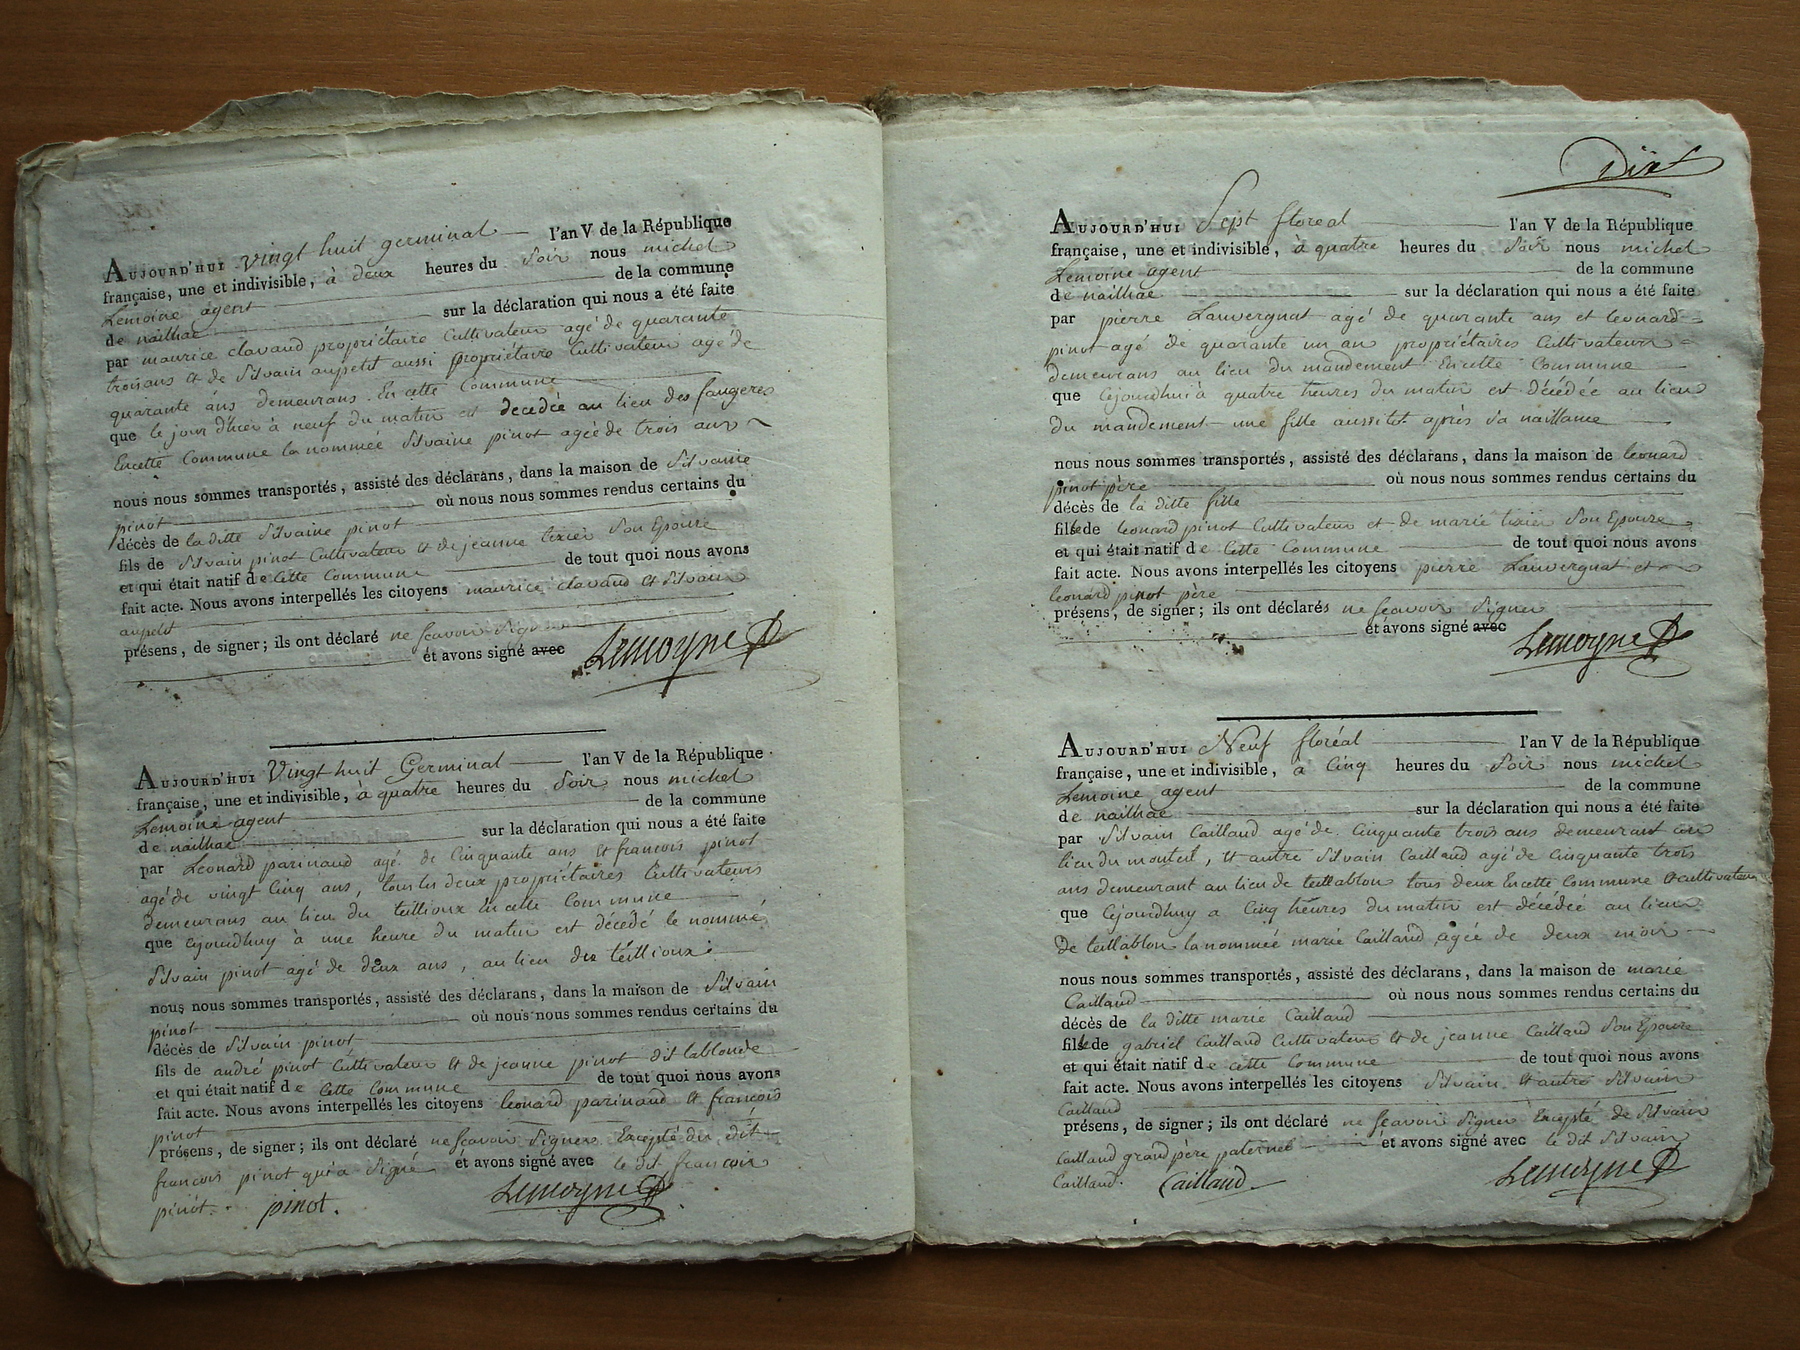 AUJOURD'HUI vingt huit germinal l'an V de la République
française, une et indivisible, à deux heures du Soir nous michel
Lemoine agent de la commune
de naillac sur la déclaration qui nous a été faite
par maurice clavaud propriétaire Cultivateur agé de quarante
trois ans et de Silvain aupetit aussi propriétaire Cultivateur agé de
quarante ans demeurans En cette Commune
que le jour d'hier à neuf du matin est decedée au lieu des faugeres
Encette Commune la nommée Silvaine pinot agée de trois ans
nous nous sommes transportés, assisté des déclarans, dans la maison de Silvaine
pinot où nous nous sommes rendus certains du
décès de la ditte Silvaine pinot
fils de Silvain pinot Cultivateur et de jeanne texier Son Epouse
et qui était natif de Cette Commune de tout quoi nous avons
fait acte. Nous avons interpellés les citoyens maurice clavaud et Silvain
aupetit
présens, de signer; ils ont déclaré ne scavoir Signer
et avons signé avec Lemoyne
AUJOURD'HUI Vingt huit Germinal l'an V de la République
française, une et indivisible, à quatre heures du Soir nous michel
Lemoine agent de la commune
de naillac sur la déclaration qui nous a été faite
par Leonard parinaud agé de Cinquante ans et francois pinot
agé de vingt Cinq ans, tous les deux propriétaires Cultivateurs
demeurans au lieu du teillioux En cette Commune
que Cejourdhuy à une heure du matin est décédé le nommé
Silvain pinot agé de deux ans, au lieu des teillioux
nous nous sommes transportés, assisté des déclarans, dans la maison de Silvain
pinot où nous nous sommes rendus certains du
décès de Silvain pinot
fils de andré pinot Cultivateur et de jeanne pinot dit lablonde
et qui était natif de Cette Commune de tout quoi nous avons
fait acte. Nous avons interpellés les citoyens leonard parinaud et francois
pinot
présens, de signer; ils ont déclaré ne scavoir Signer Excepté du dit
francois pinot qui a Signé et avons signé avec le dit francois
pinot. pinot. Lemoyne
Dix
AUJOURD'HUI Sept floreal l'an V de la République
française, une et indivisible, à quatre heures du Soir nous michel
Lemoine agent de la commune
de naillac sur la déclaration qui nous a été faite
par pierre Lauvergnat agé de quarante ans et leonard
pinot agé de quarante un ans propriétaires Cultivateurs
demeurans au lieu du mandement Encette Commune
que Cejourdhui à quatre heures du matin est décédée au lieu
du mandement une fille aussitot après sa naissance
nous nous sommes transportés, assisté des déclarans, dans la maison de leonard
pinot père où nous nous sommes rendus certains du
décès de la ditte fille
fille de leonard pinot Cultivateur et de marie texier Son Epouse
et qui était natif de Cette Commune de tout quoi nous avons
fait acte. Nous avons interpellés les citoyens pierre Lauvergnat et
leonard pinot père
présens, de signer; ils ont déclarés ne scavoir Signer
et avons signé avec Lemoyne
AUJOURD'HUI Neuf floréal l'an V de la République
française, une et indivisible, à Cinq heures du Soir nous michel
Lemoine agent de la commune
de naillac sur la déclaration qui nous a été faite
par Silvain Caillaud agé de Cinquante trois ans demeurant au
lieu du monteil, et autre Silvain Caillaud agé de Cinquante trois
ans demeurant au lieu de teillablou tous deux Encette Commune et cultivateurs
que Cejourdhuy a Cinq heures du matin est décédée au lieu
De teillablou la nommée marie Caillaud agée de deux mois
nous nous sommes transportés, assisté des déclarans, dans la maison de marie
Caillaud où nous nous sommes rendus certains du
décès de la ditte marie Caillaud
fille de gabriel Caillaud Cultivateur et de jeanne Caillaud Son Epouse
et qui était natif de cette Commune de tout quoi nous avons
fait acte. Nous avons interpellés les citoyens Silvain et autre Silvain
Caillaud
présens, de signer; ils ont déclaré ne scavoir Signer Excepté de Silvain
Caillaud grand père paternel et avons signé avec le dit Silvain
Caillaud. Caillaud Lemoyne